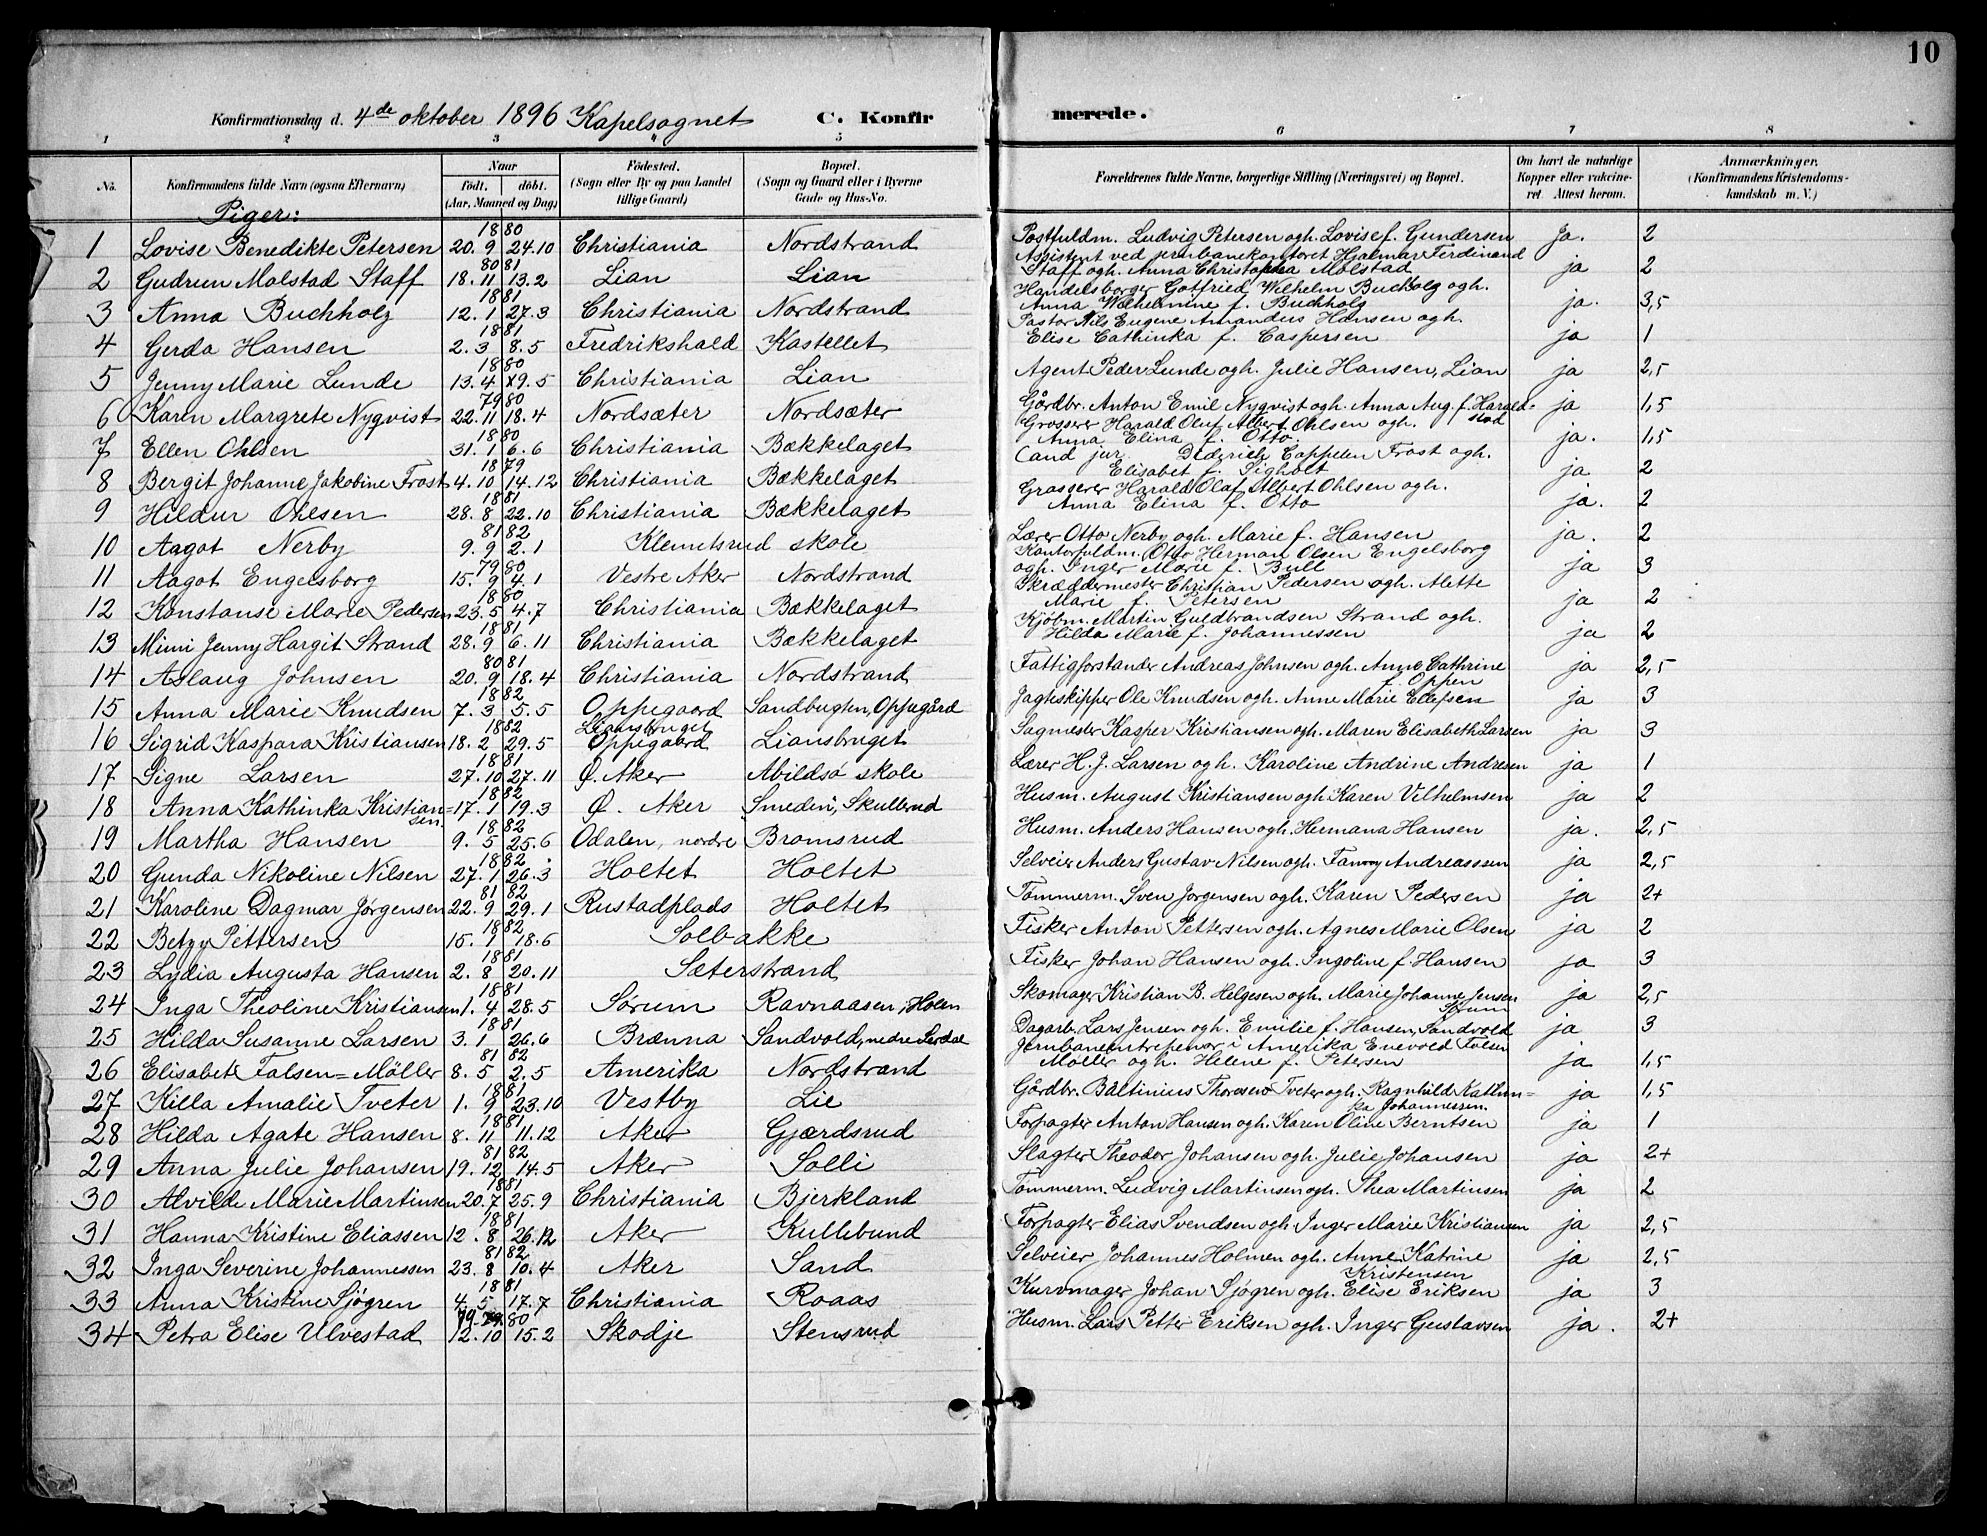 10
Konfirmationsdag d. 4de oktober 1896 Kapelsognet C. Konfirmerede.
1 2 3 4 5 6 7 8
No. Konfirmandens fulde Navn (ogsaa Efternavn) Naar født. døbt. (Aar, Maaned og Dag) Fødested. (Sogn eller By og paa Landet tillige Gaard) Bopæl. (Sogn og Gaard eller i Byerne Gade og Hus-No. Forældrenes fulde Navne, borgerlige Stilling (Næringsvei) og Bopæl. Om havt de naturlige Kopper eller vakcineret. Attest herom. Anmærkninger. (Konfirmandens Kristendomskundskab m. V.)
Piger:
1 Lovise Benedikte Petersen 1880 20.9 24.10 Christiania Nordstrand Postfuldm. Ludvig Petersen ogh. Lovise f. Gundersen Ja. 2
2 Gudrun Molstad Staff 80 81 18.11 13.2 Lian Lian Assistent ved jernbanekontoret Hjalmar Ferdinand Staff ogh. Anna Christopha Molstad ja 2
3 Anna Buchholz 1881 12.1 27.3 Christiania Nordstrand Handelsborger Gotfried Wilhelm Buchholz ogh. Anna Wilhelmine f. Buchholz ja. 3,5
4 Gerda Hansen 1881 2.3 8.5 Fredrikshald Kastellet Pastor Nils Eugene Amandus Hansen ogh. Elise Cathinka f. Caspersen ja 1
5 Jenny Marie Lunde 1880 13.4 29.5 Christiania Lian Agent Peder Lunde ogh. Julie Hansen, Lian ja 2,5
6 Karen Margrete Nyqvist 79 80 22.11 18.4 Nordsæter Nordsæter Gårdbr. Anton Emil Nyqvist ogh. Anna Aug. f. Haraldstad ja 1,5
7 Ellen Ohlsen 1880 31.1 6.6 Christiania Bækkelaget Grosserer Harald Oluf Albert Ohlsen ogh. Anna Elina f. Otto. ja. 1,5
8 Bergit Johanne Jakobine Frost 1879 4.10 14.12 Christiania Bækkelaget Cand jur. Diderich Cappelen Frost ogh. Elisabet f. Sigholt ja. 2
9 Hildur Ohlsen 1881 28.8 22.10 Christiania Bækkelaget Grosserer Harald Olaf Albert Ohlsen ogh. Anna Elina f. Otto ja. 2
10 Aagot Nerby 81 82 9.9 2.1 Klemetsrud skole Lærer Otto Nerby ogh. Marie f. Hansen ja. 2
11 Aagot Engelsborg 79 80 15.9 4.1 Vestre Aker Nordstrand Kontorfuldm. Otto Herman Olsen Engelsborg ogh. Inger Marie f. Bull ja 3
12 Konstanse Marie Pedersen 1880 23.5 4.7 Christiania Bækkelaget Skræddermester Christian Pedersen ogh. Alette Marie f. Petersen ja 2
13 Mimi Jenny Hargit Strand 1881 28.9 6.11 Christiania Bækkelaget Kjøbm. Martin Guldbrandsen Strand ogh. Hilda Marie f. Johannessen ja 2
14 Aslaug Johnsen 80 81 20.9 18.4 Christiania Nordstrand Fattigforstander Andreas Johnsen ogh. Anne Cathrine f. Oppen ja 2,5
15 Anna Marie Knudsen 1882 7.3 5.5 Oppegaard Sandbugten, Oppegård Jagtskipper Ole Knudsen ogh. Anne Marie Ellefsen ja 3
16 Sigrid Kaspara Kristiansen 1882 18.2 29.5 Liansbruget Oppegaard Liansbruget Sagmester Kasper Kristiansen ogh. Maren Elisabeth Larsen ja 3
17 Signe Larsen 1881 27.10 27.11 Ø. Aker Abildsø skole Lærer H. J. Larsen ogh. Karoline Andrine Andresen ja 1
18 Anna Kathinka Kristiansen 1882 17.1 19.3 Ø. Aker Smedin, Skullerud Husm. August Kristiansen ogh. Karen Vilhelmsen ja 2
19 Martha Hansen 1882 9.5 25.6 Odalen, nordre Bromsrud Husm. Anders Hansen ogh. Hermana Hansen ja. 2,5
20 Gunda Nikoline Nilsen 1882 27.1 26.3 Holtet Holtet Selveier Anders Gustav Nilsen ogh. Fanny Andreasssen ja 2,5
21 Karoline Dagmar Jørgensen 81 82 22.9 29.1 Rustadplads Holtet Tømmerm. Sven Jorgensen ogh. Karen Pedersen ja 2+
22 Betzy Pettersen 1882 15.1 18.6 Solbakke Fisker Anton Pettersen ogh. Agnes Marie Olsen ja 2
23 Lydia Augusta Hansen 1881 2.8 20.11 Sæterstrand Fisker Johan Hansen ogh. Ingoline f. Hansen ja 3
24 Inga Theoline Kristiansen 1881 1.4 28.5 Sørum Ravnaasen, Holm Skomager Kristian B. Helgesen ogh. Marie Johanne Jensen ja 2,5
25 Hilda Susanne Larsen 1881 3.1 26.6 Brænna Sandvold, nedre Dagarb. Lars Jensen ogh. Emilie f. Hansen, Sandvold ja 3
26 Elisabet Falsen=Møller 81 82 8.5 2.5 Amerika Nordstrand Jernbaneentreprenør i Amerika Enevold Falsen Møller ogh. Helene f. Petersen ja 1,5
27 Killa Amalie Tveter 1881 1.9 23.10 Vestby Lie Gårdbr. Baltinius Thoresen Tveter ogh. Ragnhild Kathinka Johannessen. ja 1,5
28 Hilda Agate Hansen 1881 8.11 11.12 Aker Gjærdsrud Forpagter Anton Hansen ogh. Karen Oline Berntsen ja 1
29 Anna Julie Johansen 81 82 19.12 14.5 Aker Solli Slagter Theodor Johansen ogh. Julie Johansen ja 2+
30 Alvilde Marie Martinsen 1881 20.7 25.9 Christiania Bjerkland Tømmerm. Ludvig Martinsen ogh. Thea Martinsen ja 2
31 Hanna Kristine Eliassen 1881 12.8 26.12 Aker Kullebund Forpagter Elias Svendsen ogh. Inger Marie Kristiansen ja 2,5
32 Inga Severine Johannessen 81 82 23.8 10.4 Aker Sand Selveier Johannes Holmen ogh. Anne Katrine Kristensen ja 2,5
33 Anna Kristine Sjøgren 1881 4.5 17.7 Christiania Roaas Kurvmager Johan Sjøgren ogh. Elise Eriksen ja 3
34 Petra Elise Ulvestad 79 80 12.10 15.2 Skodje Stensrud Husm. Lars Petter Eriksen ogh. Inger Gustavsen ja. 2+